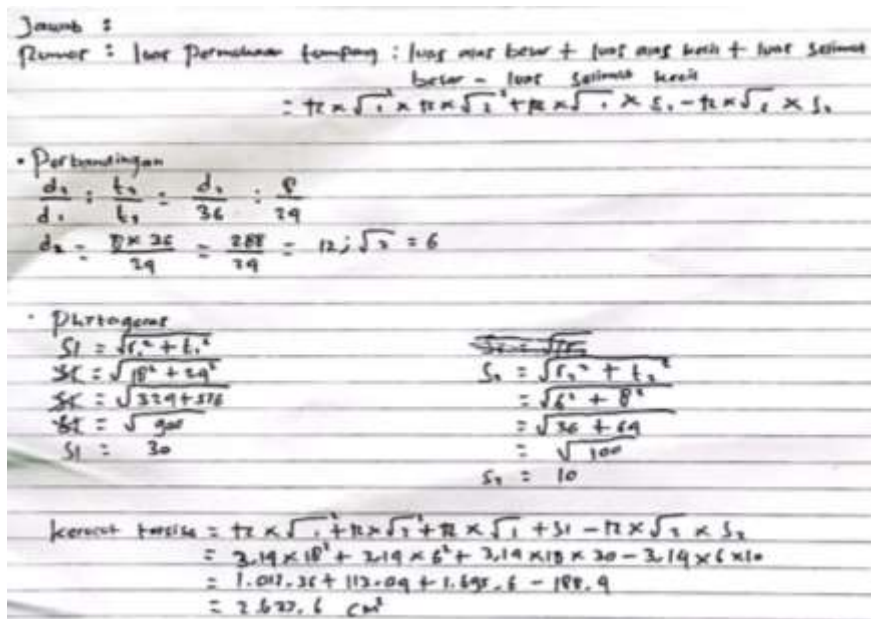 Jawab :
Rumus : luas permukaan tumpang : luas alas besar + luas alas kecil + luas selimut
besar - luas selimut kecil
= π × r₁² × π × r₂² + π × r₁ × s₁ - π × r₂ × s₂
• Perbandingan
d₂/d₁ = t₂/t₁ = d₂/36 = 8/24
d₂ = 8 × 36/24 = 288/24 = 12 ; r₂ = 6
• Phytagoras
S1 = √r₁² + t₁²
= √18² + 24²
= √324 + 576
= √900
S1 = 30
S₂ = √r₂² + t₂²
= √6² + 8²
= √36 + 64
= √100
S₂ = 10
kerucut tersisa = π × r₁² + π × r₂² + π × r₁ + S1 - π × r₂ × S₂
= 3.14 × 18² + 3.14 × 6² + 3.14 × 18 × 30 - 3.14 × 6 × 10
= 1.017.36 + 113.04 + 1.695.6 - 188.4
= 2.637.6 cm²